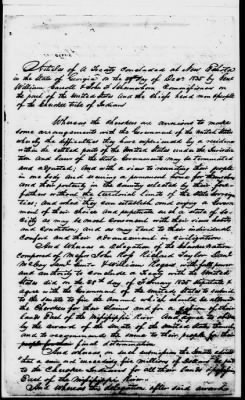 Articles of a Treaty concluded at New Echota
in the State of Georgia on the 29th day of Decr 1835 by Genl
William Carroll & John F. Schermerhorn Commissioners on
the part of the United States and the Chiefs head men & people
of the Cherokee tribe of Indians
Whereas the Cherokees are anxious to make
some arrangements with the Government of the United States
whereby the difficulties they have experienced by a residence
within the settled parts of the United States under the jurisdic-
tion and laws of the State Governments may be terminated
and adjusted; and with a view to reuniting their people
in one body and securing a permanent home for themselves
and their posterity in the country selected by their fore-
fathers without the territorial limits of the State sovereign-
ties, and where they can establish and enjoy a Govern-
ment of their choice and perpetuate such a state of so-
ciety as may be most consonant with their views habits
and condition; and as may tend to their individual
comfort and their advancement in civilization.
And Whereas a delegation of the Cherokee nation
composed of Messrs John Ross Richard Taylor Danl
McCoy Saml Gunter William Rogers with full power
and authority to conclude a treaty with the United
States did on the 28th day of February 1835 stipulate &
agree with the Government of the United States to submit
to the Senate to fix the amount which should be allowed
the Cherokees for their claims and for a cession of their
lands East of the Mississippi River
by the award of the Senate of the United States themselves
and to recommend the same to their people for their
final determination
And whereas on such submission the Senate advised
that a sum not exceeding five millions of dollars be paid
to the Cherokee Indians for all their lands & possessions
East of the Mississippi River.
And whereas this delegation after said award